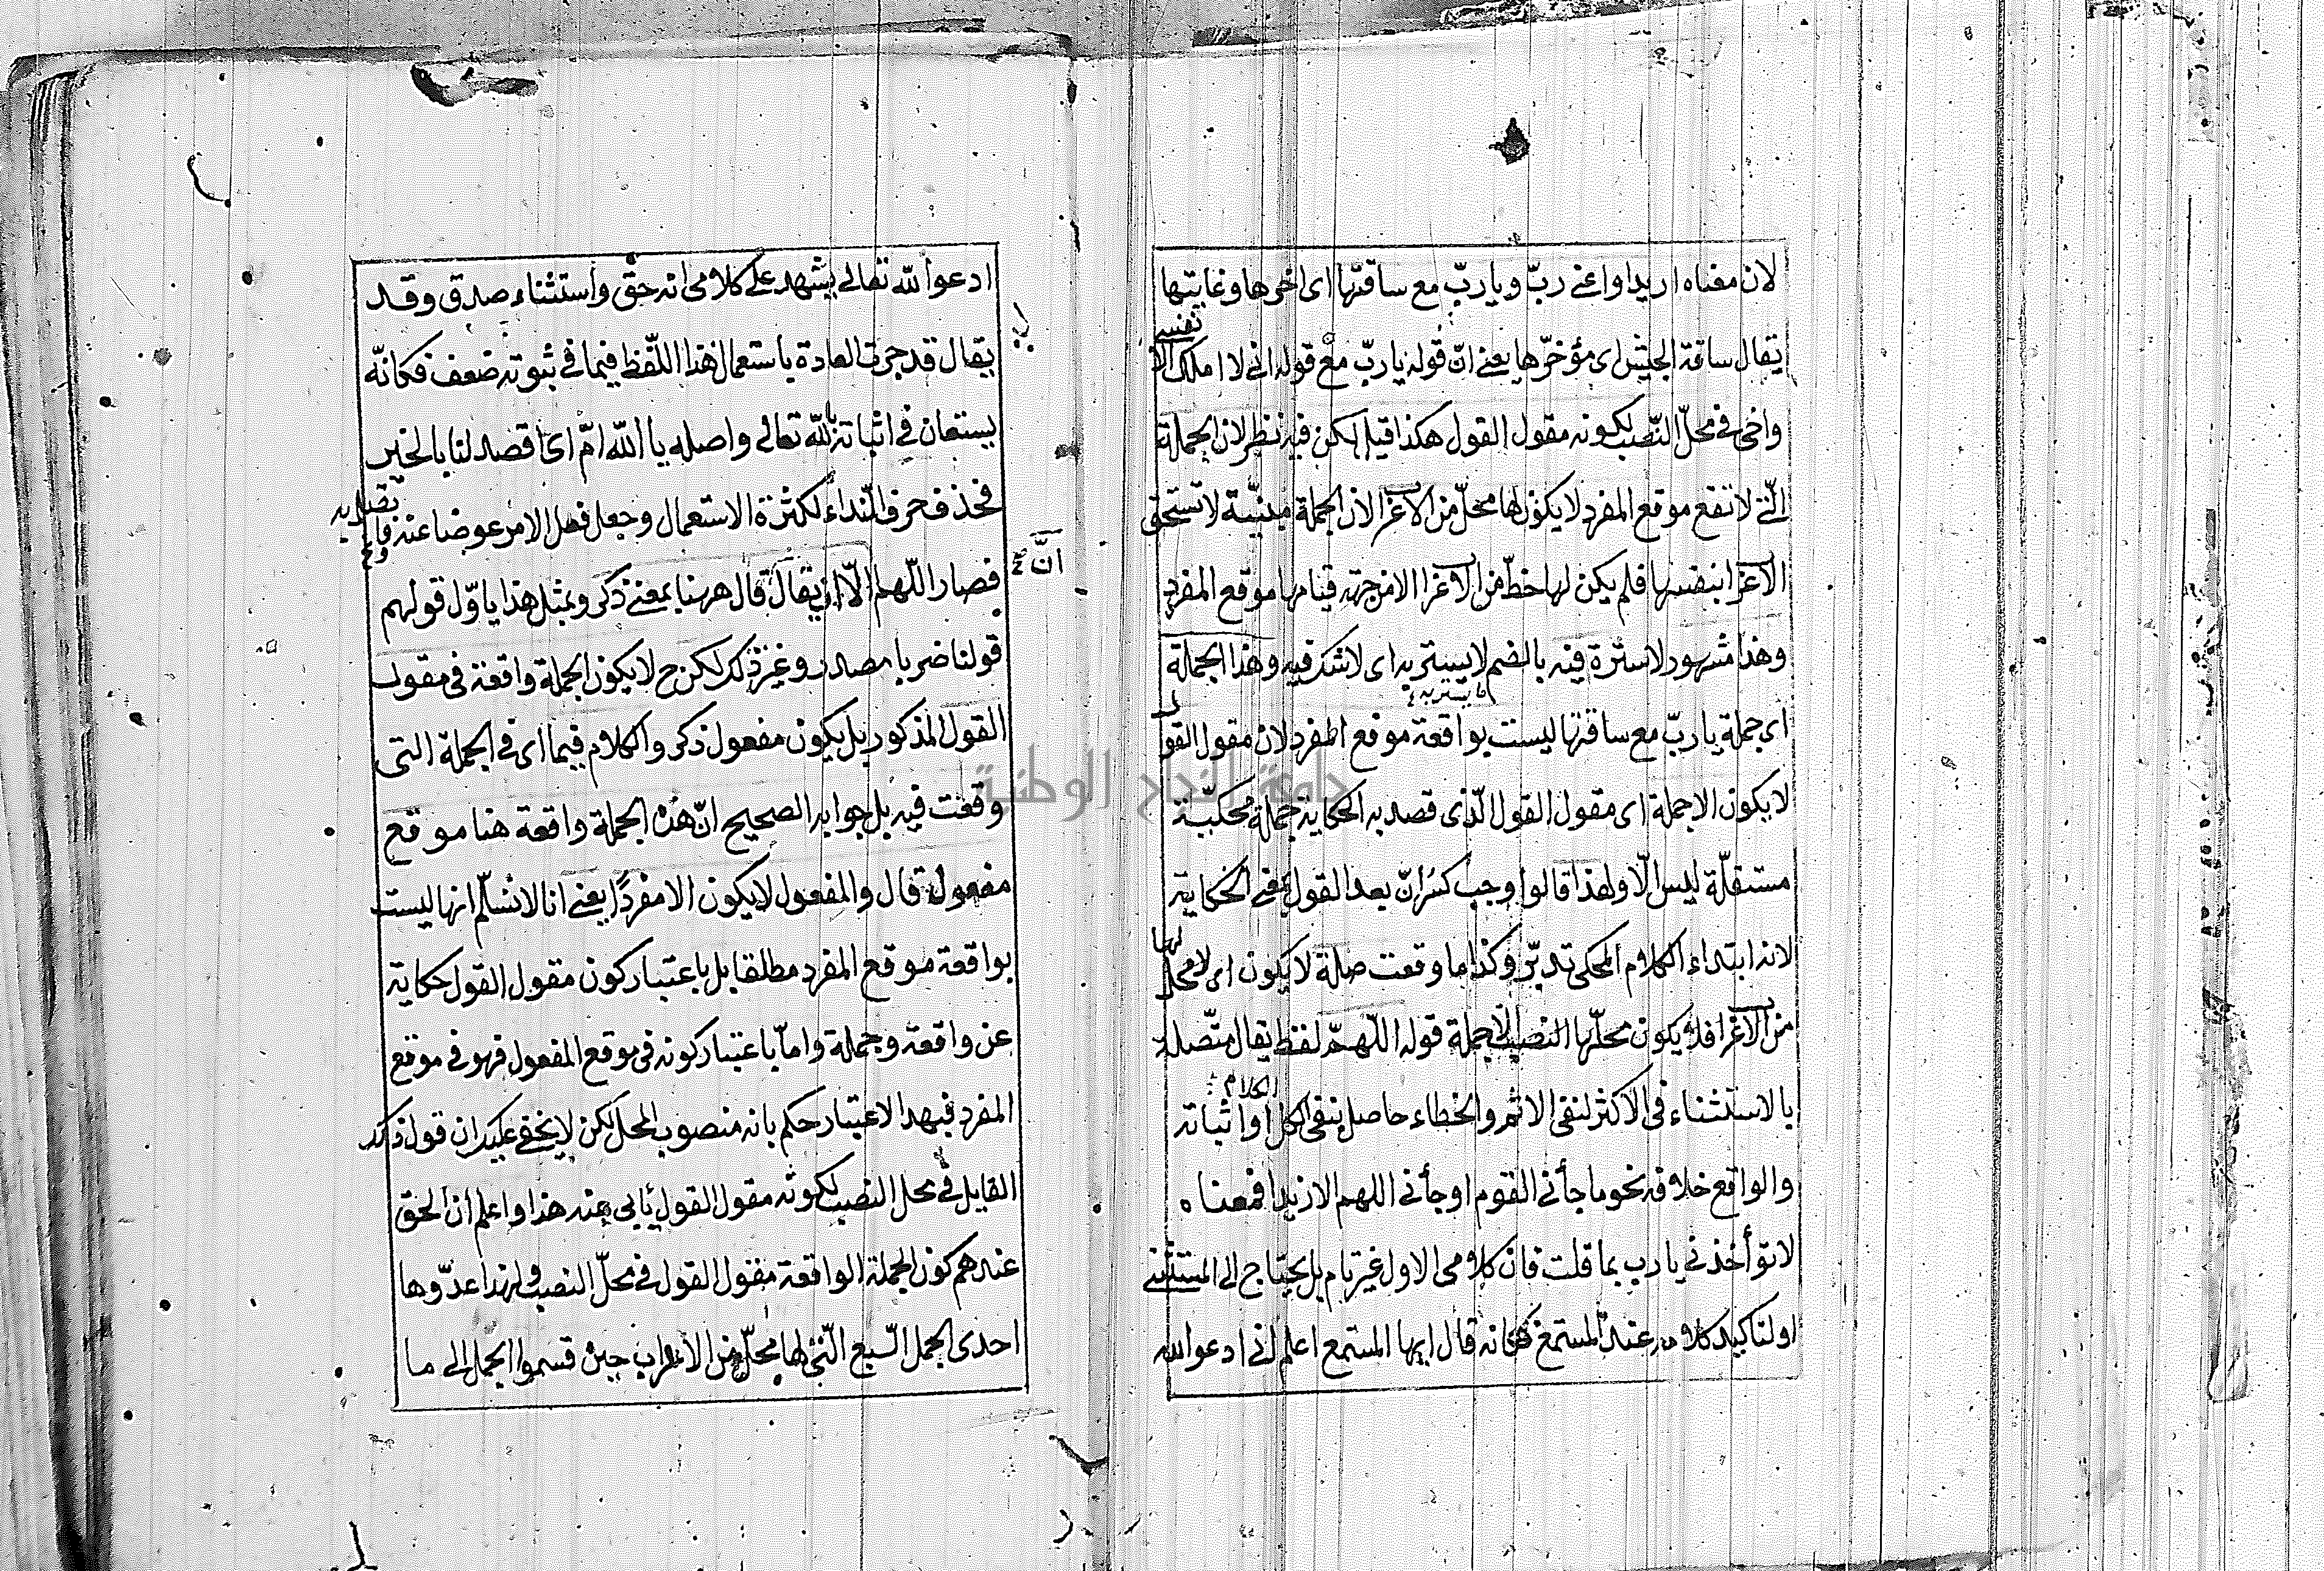 لان معناه اريد او اعنى ربّ ويا ربّ مع ساقتها اى اخرها وغايتها
يقال ساقة الجيش اى مؤخّرها يعنى انّ قوله يا ربّ مع قوله انى لا املك الا نفسى
واخى فى محلّ النّصب لكونه مقول القول هكذا قيل لكن فيه نظر لان الجملة
الّتى لا تقع موقع المفرد لا يكون لها محلّ من الاعراب لان الجملة مبنيّة لا تستحق
الاعراب بنفسها فلم يكن لها حظّ من الاعراب الا من جهة قيامها موقع المفرد
وهذا مشهور لا سترة فيه بالضم لا يستتر به اى لا شك فيه وهذا الجملة
ما يستر به
اى جملة يا ربّ مع ساقتها ليست بواقعة موقع المفرد لان مقول القول
لا يكون الا جملة اى مقول القول الّذى قصد به الحكاية جملة محكيّة
مستقلّة ليس الّا ولهذا قالوا وجب كسر انّ بعد القول بمعنى الحكاية
لانه ابتداء الكلام المحكى تدبّر وكذا ما وقعت صلة لا يكون اى لا محلّ لها
من الاعراب فلا يكون محلّها النصب الا جملة قوله اللّهمّ لفظ يقال متّصلة
بالاستثناء فى الاكثر لنفى الاثم والخطاء حاصل بنفى الكل او اثباته
الكلام
والواقع خلافه نحو ما جأنى القوم او جأنى اللهم الا زيدا فمعناه
لا تؤأخذنى يا رب بما قلت فان كلامى الاول غير تام بل يحتاج الى المستثنى
او لتاكيد كلامه عند المستمع فكانه قال ايها المستمع اعلم انى ادعو الله
ادعو الله تعالى يشهد على كلامى انه حقّ واستثناء صدق وقد
يقال قد جرت العادة باستعمال هذا اللّفظ فيما فى ثبوته ضعف فكانّه
يستعان فى اثباته بالله تعالى واصله يا الله امّ اى اقصد لنا بالخير
فحذف حرف النّداء لكثرة الاستعمال وجعل فعل الامر عوضا عنه
فصار اللّهم الّا ان يقال قال ههنا بمعنى ذكر وبمثل هذا ياوّل قولهم
انّ
قولنا ضربا مصدر وغير ذلك لكن ح لا يكون الجملة واقعة فى مقول
القول المذكور بل يكون مفعول ذكر والكلام فيما اى فى الجملة التى
وقعت فيه بل جوابه الصحيح انّ هذه الجملة واقعة هنا موقع
مفعول قال والمفعول لا يكون الا مفردًا يعنى انا لا نسلّم انها ليست
بواقعة موقع المفرد مطلقا بل باعتبار كون مقول القول حكاية
عن واقعة وجملة وامّا باعتبار كونه فى موقع المفعول فهو فى موقع
المفرد فبهذا الاعتبار حكم بانه منصوب المحل لكن لا يخفى عليك ان قول
القايل فى محل النصب لكونه مقول القول يأبى عنه هذا واعلم ان الحق
عندهم كون الجملة الواقعة مقول القول فى محلّ النصب ولهذا عدّوها
احدى الجمل السّبع الّتى لها محلّ من الاعراب حين قسموا الجمل الى ما
جامعة النجاح الوطنية